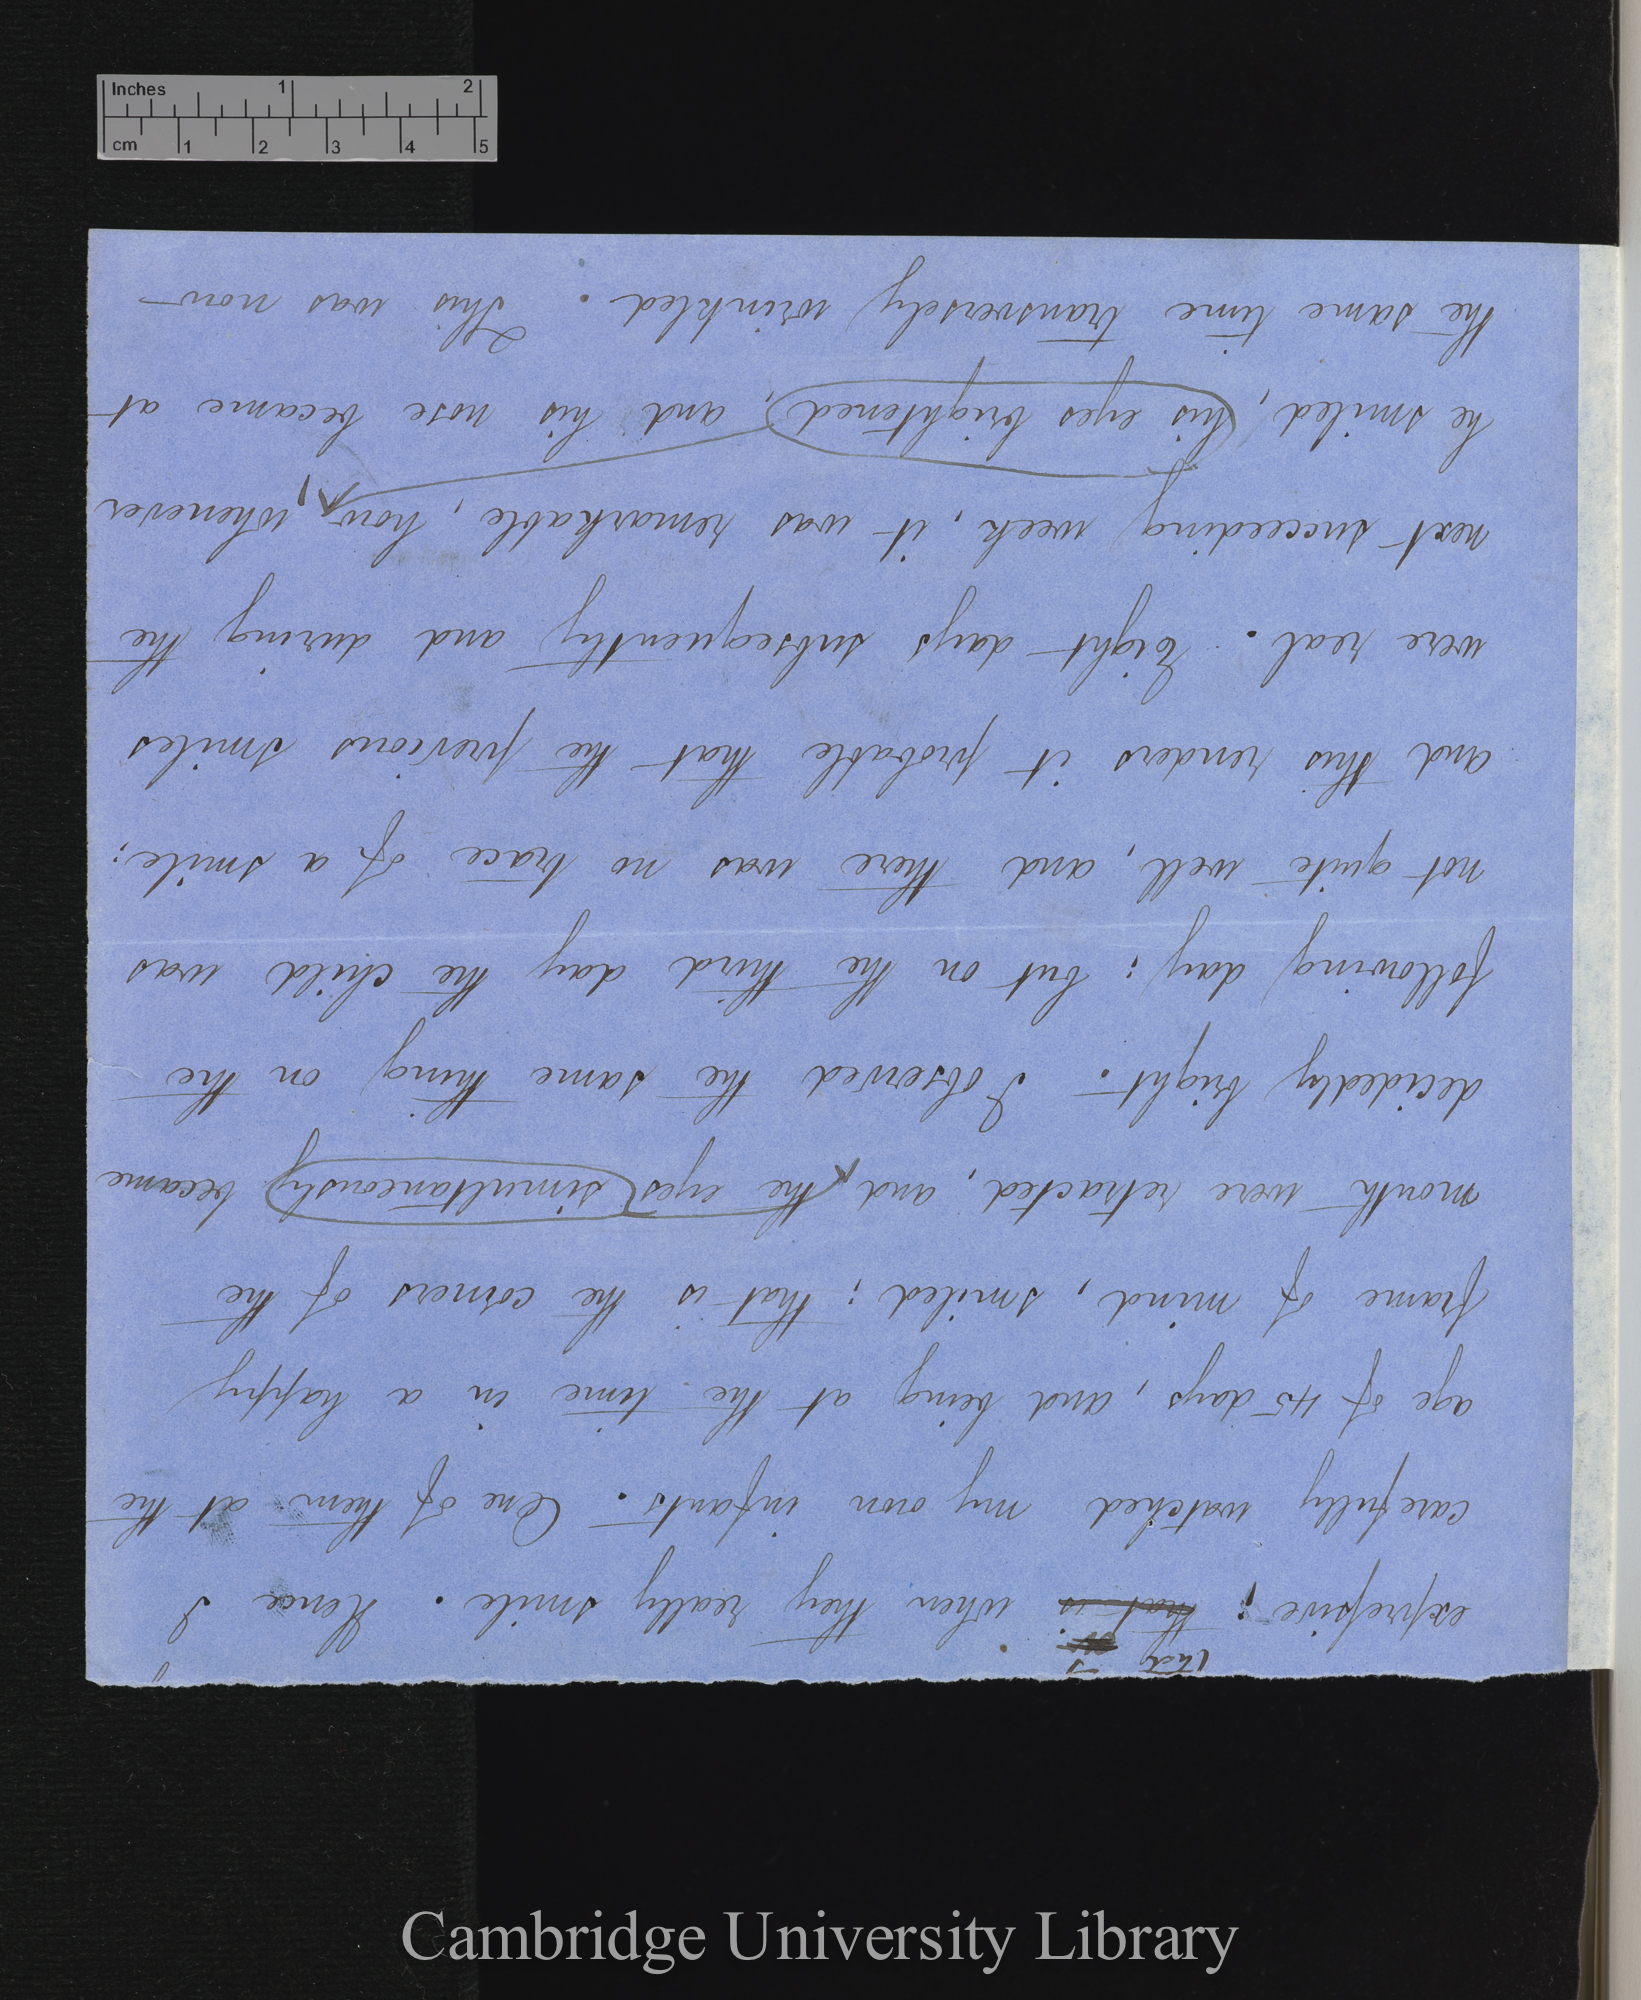 Inches 1 2
cm 1 2 3 4 5
that is
expressive; that is when they really smile. Hence I
carefully watched my own infants. One of them at the
age of 45 days, and being at the time in a happy
frame of mind, smiled; that is the corners of the
mouth were retracted, and the eyes simultaneously became
decidedly bright. I observed the same thing on the
following day; but on the third day the child was
not quite well, and there was no trace of a smile;
and this renders it probable that the previous smiles
were real. Eight days subsequently and during the
next succeeding week, it was remarkable, how, whenever
he smiled, his eyes brightened, and his nose became at
the same time transversely wrinkled. This was now
Cambridge University Library